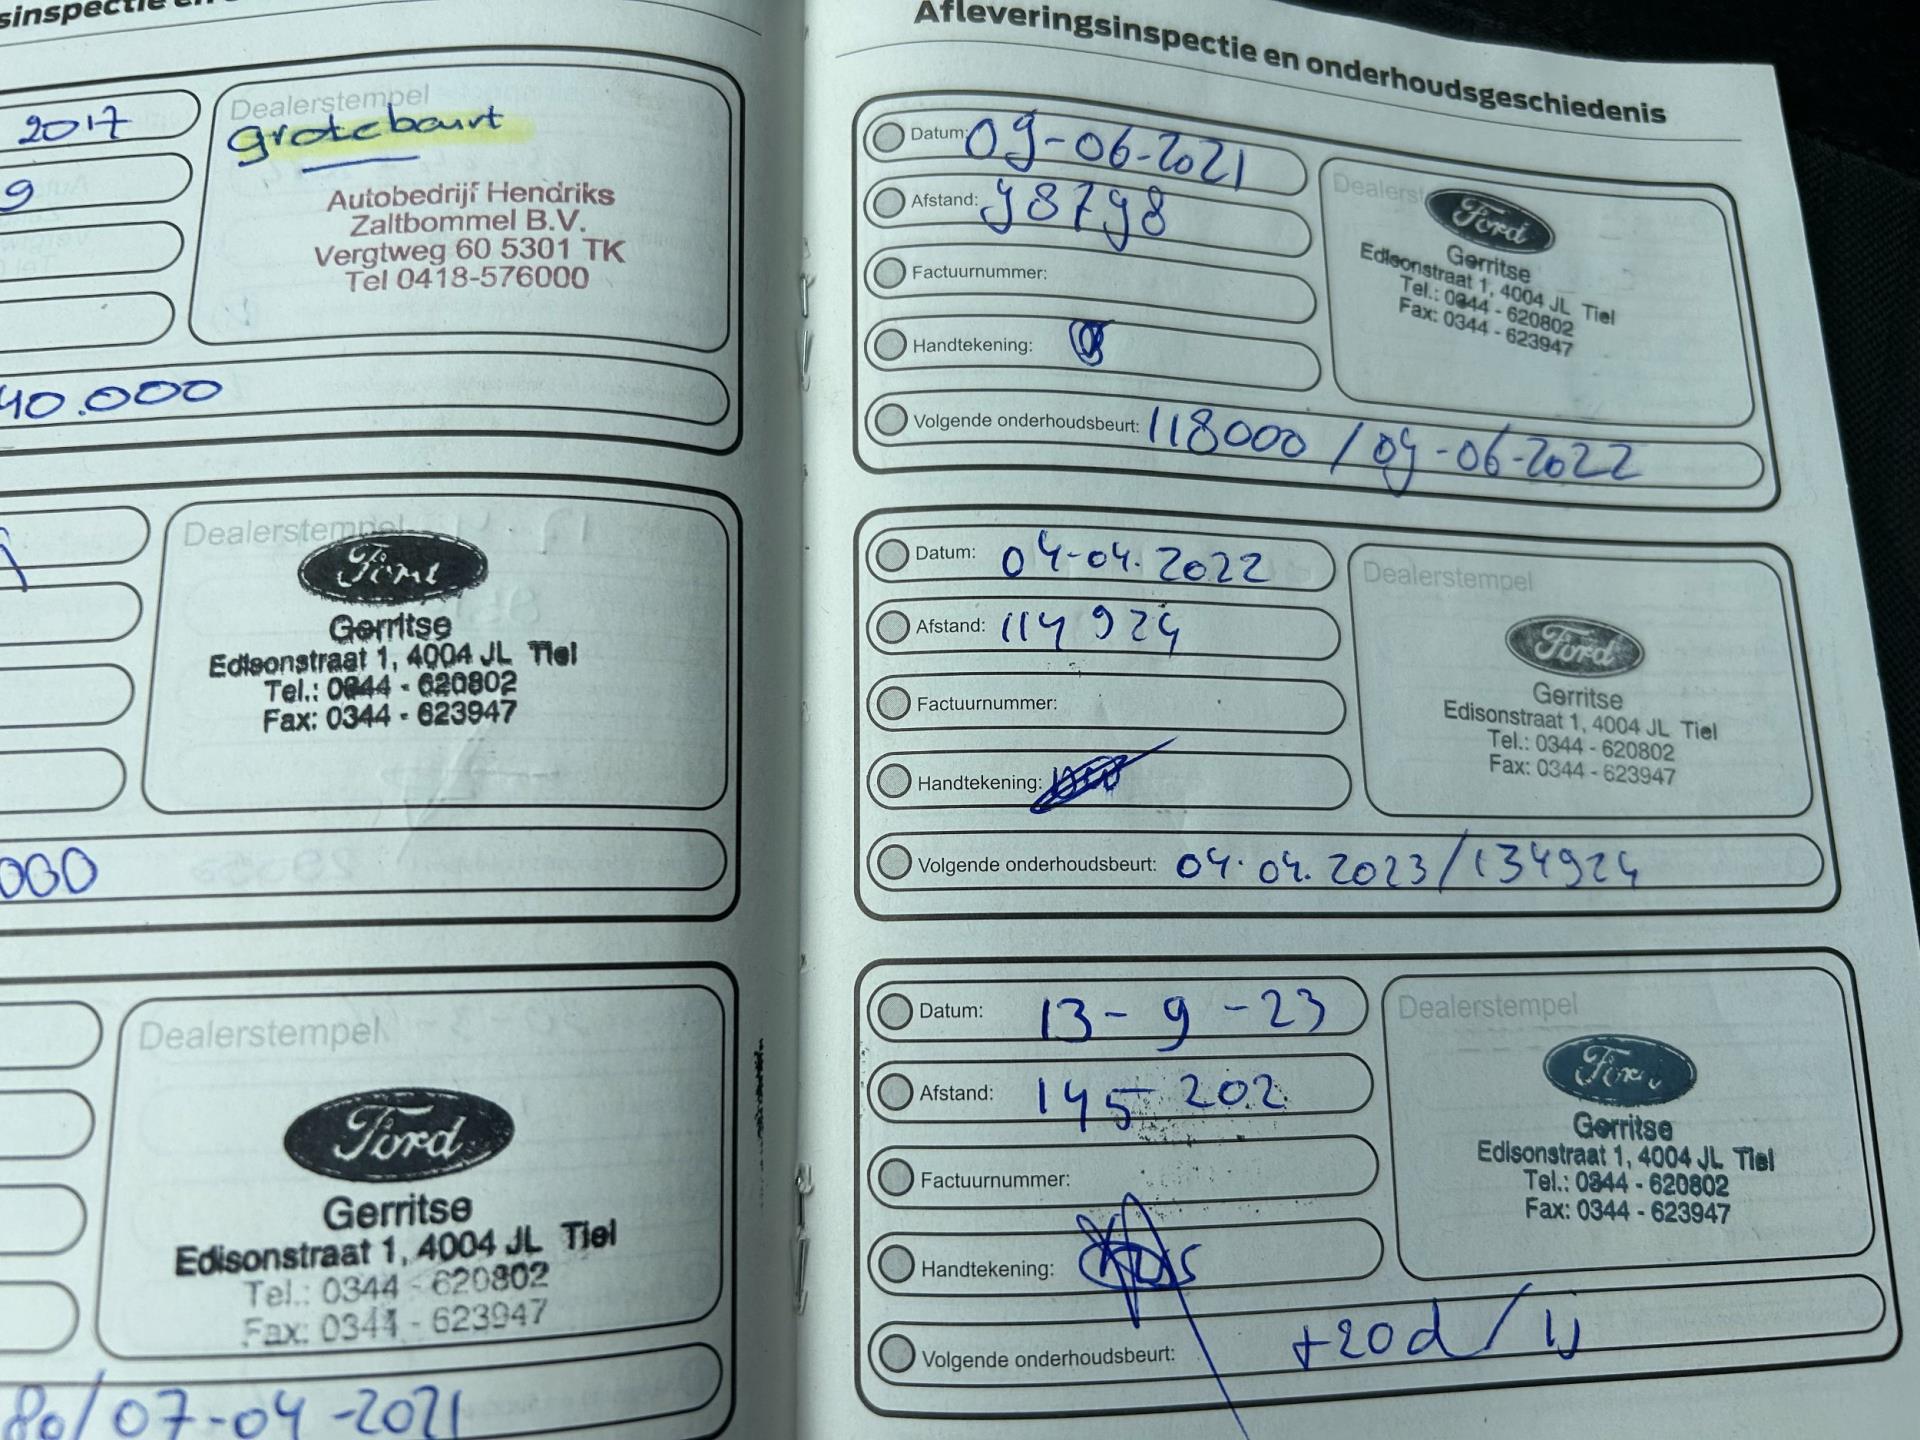 Dealerstempel
2017
grote beurt
9
Autobedrijf Hendriks
Zaltbommel B.V.
Vergtweg 60 5301 TK
Tel 0418-576000
40.000
Dealerstempel
Ford
Gerritse
Edisonstraat 1, 4004 JL Tiel
Tel.: 0344 - 620802
Fax: 0344 - 623947
000
Dealerstempel
Ford
Gerritse
Edisonstraat 1, 4004 JL Tiel
Tel.: 0344 - 620802
Fax: 0344 - 623947
80/07-04-2021
Afleveringsinspectie en onderhoudsgeschiedenis
Datum: 09-06-2021
Afstand: 98798
Factuurnummer:
Handtekening:
Volgende onderhoudsbeurt: 118000 / 09-06-2022
Ford
Gerritse
Edisonstraat 1, 4004 JL Tiel
Tel.: 0344 - 620802
Fax: 0344 - 623947
Datum: 04-04.2022
Afstand: 114924
Factuurnummer:
Handtekening:
Volgende onderhoudsbeurt: 04.04.2023/134924
Dealerstempel
Ford
Gerritse
Edisonstraat 1, 4004 JL Tiel
Tel.: 0344 - 620802
Fax: 0344 - 623947
Datum: 13-9-23
Afstand: 145 202
Factuurnummer:
Handtekening:
Volgende onderhoudsbeurt: +20d / 1j
Dealerstempel
Ford
Gerritse
Edisonstraat 1, 4004 JL Tiel
Tel.: 0344 - 620802
Fax: 0344 - 623947